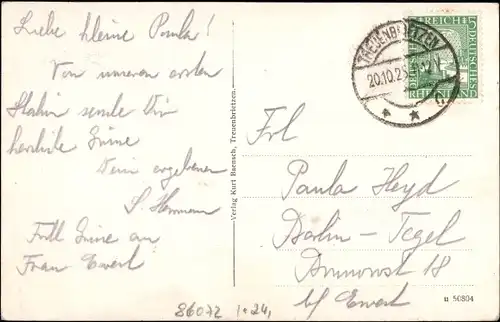 Liebe kleine Paula!
Von unserer ersten
Station sende Dir
herzliche Grüsse
Dein ergebener
S. Herrmann
Frdl Grüsse an
Frau Ewert
Verlag Kurt Baensch, Treuenbrietzen.
TREUENBRIETZEN
20.10.2
DEUTSCHES REICH 5
Frl
Paula Heyd
Berlin-Tegel
18
b/ Ewert
u 50804
86072